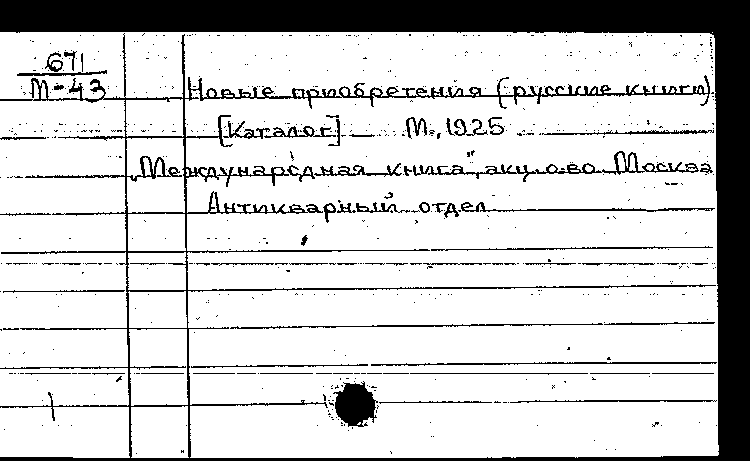 671
М-43
Новые приобретения (русские книги)
[Каталог] М., 1925
„Международная книга", акц. о-во. Москва
Антикварный отдел